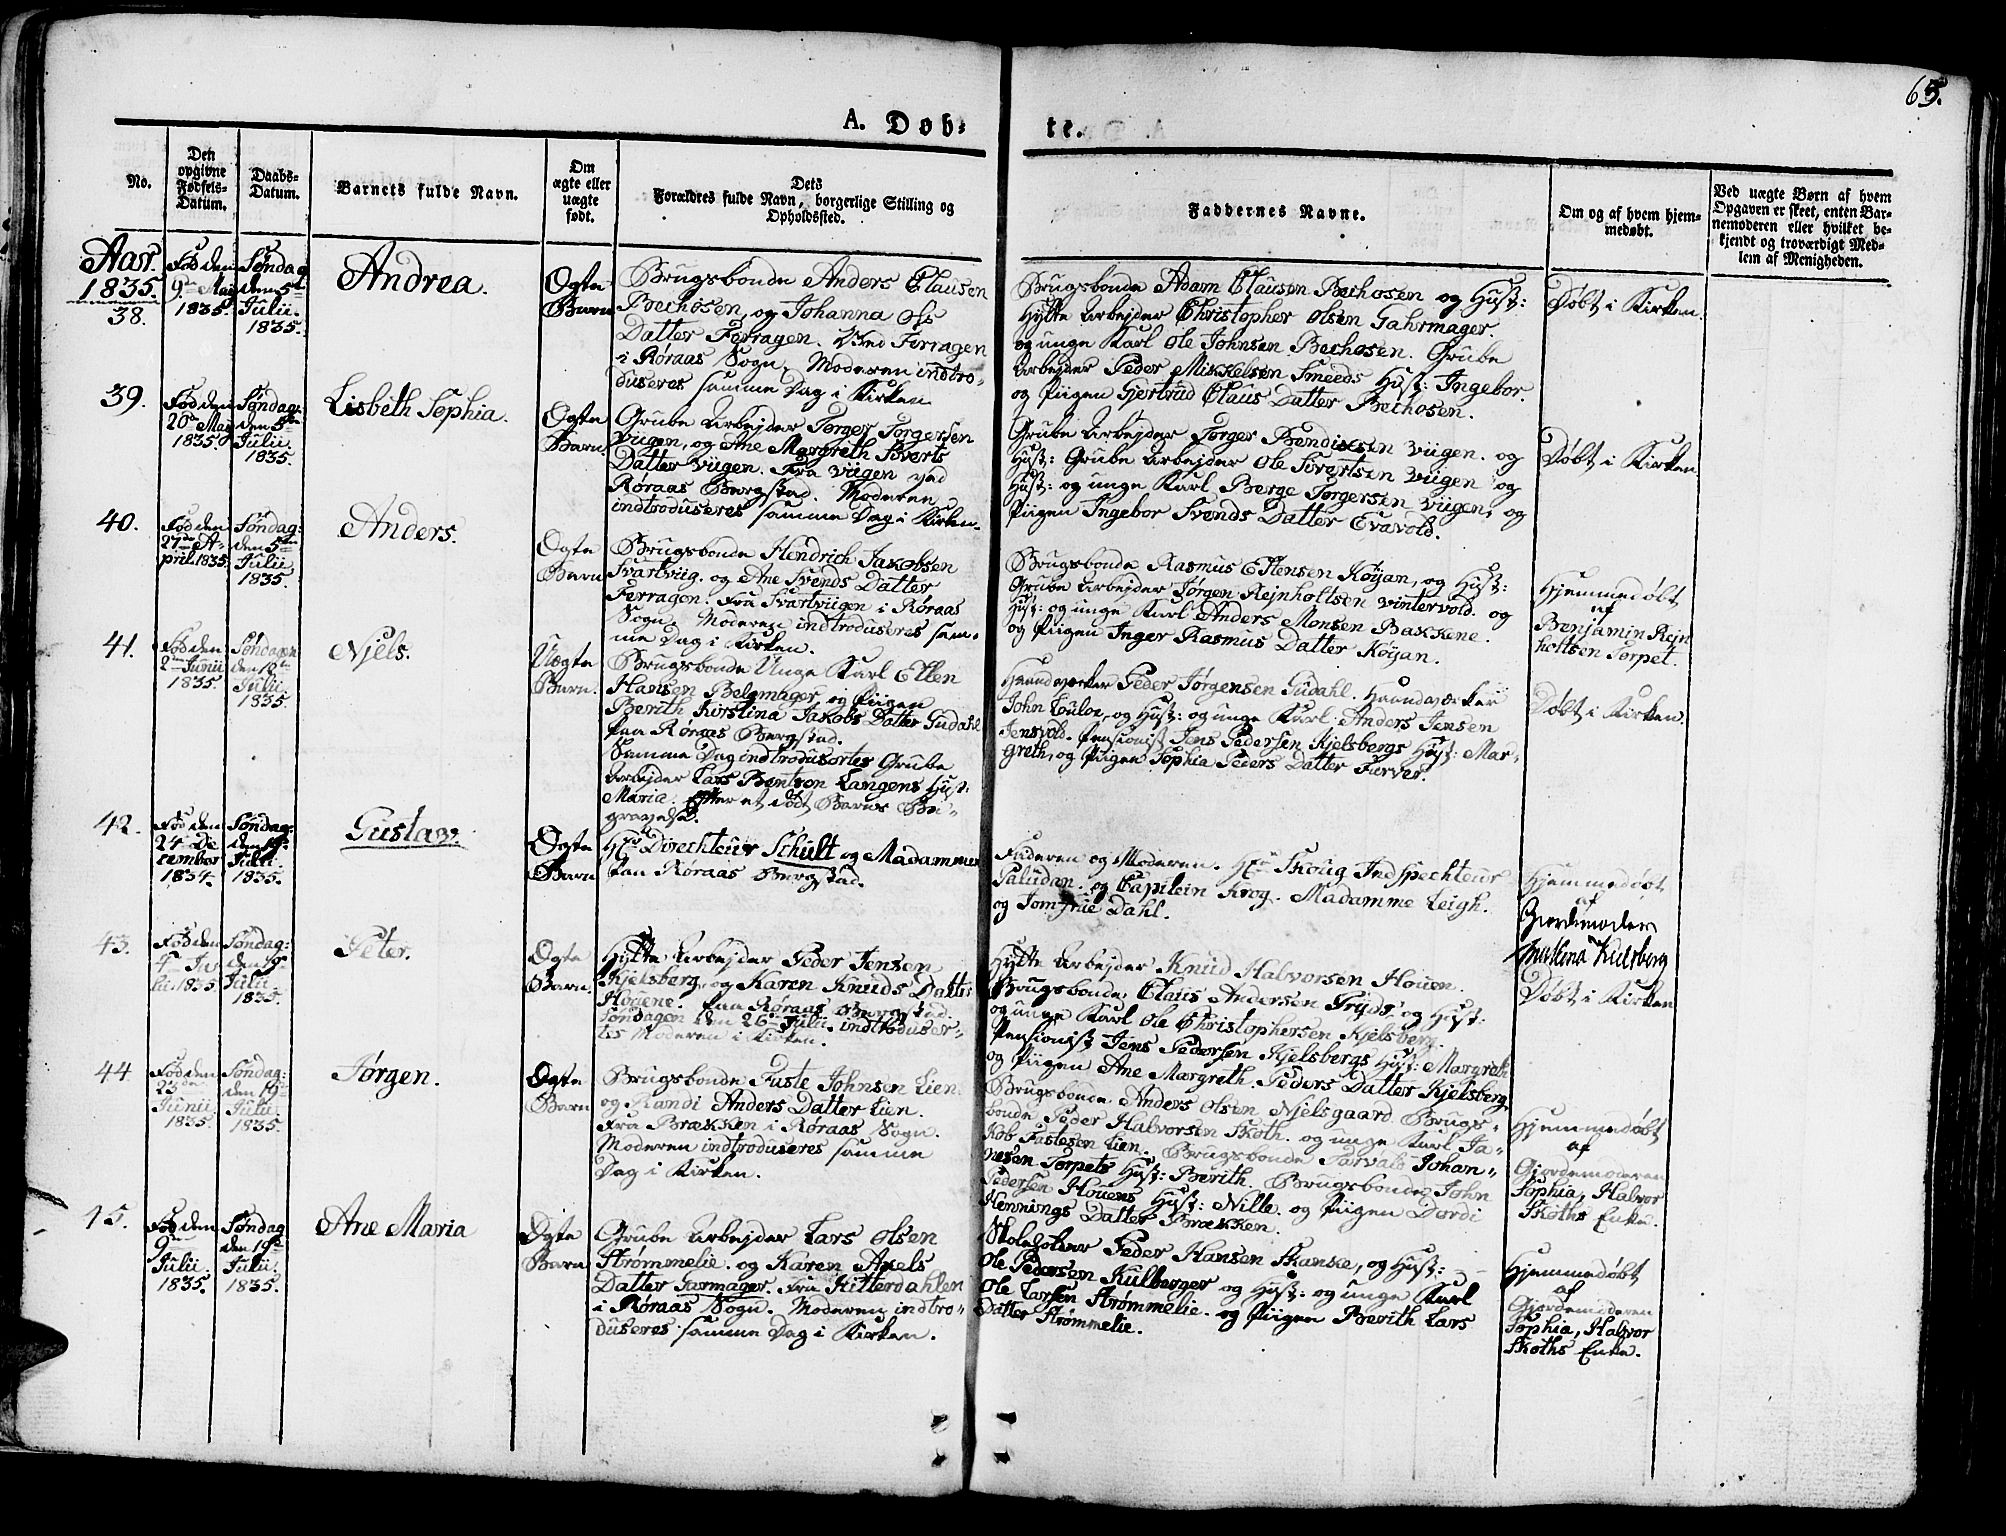 65.
A. Døb-
te.
No.
Den
opgivne
Fødsels-
Datum.
Daabs-
Datum.
Barnets fulde Navn.
Om
ægte eller
uægte
født.
Dets
Forældres fulde Navn, borgerlige Stilling og
Opholdssted.
Faddernes Navne.
Om og af hvem hjem-
medøbt.
Ved uægte Børn af hvem
Opgaven er skeet, enten Bar-
nemoderen eller hvilket be-
kjendt og troværdigt Med-
lem af Menigheden.
Aar.
1835.
38.
Fød den
9de Maij
1835.
Søndag
den 5te
Julii.
1835.
Andrea.
Ogte
Barn
Brugsbonde Anders Clausen
Bechosen, og Johanna Ols
Datter Ferragen. Ved Ferragen
i Røraas Sogn. Moderen indtro-
duseres samme Dag i Kirken
Brugsbonde Adam Clausen Bechosen og Hust:
Hytte Arbejder Christopher Olsen Gahrmager
og unge Karl Ole Johnsen Bechosen. Grube
Arbejder Peder Mikkelsen Smeeds Hust: Ingebor.
og Piigen Gjertrud Claus Datter Bechosen.
Døbt i Kirken.
39.
Fød den
20de Maij
1835.
Søndag:
den 5te
Julii.
1835.
Lisbeth Sophia.
Ogte
Barn.
Grube Arbejder Torger Torgersen
Viigen, og Ane Margreth Sverts
Datter Viigen. Fra Viigen ved
Røraas Bergstad. Moderen
indtroduseres samme Dag i Kirken.
Grube Arbejder Torger Bendixsen Viigen. og
Hust: Grube Arbejder Ole Svertsen Viigen og
Hust: og unge Karl Berge Torgersen Viigen, og
Piigen Ingebor Svends Datter Evavold.
Døbt i Kirken
40.
Fød den
27de A-
pril. 1835.
Søndag:
den 5te
Julii,
1835.
Anders.
Ogte
Barn
Brugsbonde Hendrich Jakobsen
Svartviig. og Ane Svends Datter
Ferragen. Fra Svartviigen i Røraas
Sogn. Moderen indtroduseres sam-
me Dag i Kirken.
Brugsbonde Rasmus Estensen Køijan, og Hust:
Grube Arbejder Jørgen Rejnholtsen Vintervold. og
Hust: og unge Karl Anders Monsen Bakkene.
og Piigen Inger Rasmus Datter Køijan.
Hjemmedøbt
af
Benjamin Rejn
holtsen Torpet.
41.
Fød den
2den Junii
1835.
Søndagen
den 12te
Julii
1835
Njels.
Uægte
Barn.
Brugsbonde Unge Karl Ellen
Hansen Belgmager, og Piigen
Berith Kirstina Jakobs Datter Gudahl
paa Røraas Bergstad.
Samme Dag indtrodusertes Grube
Arbejder Lars Bentsen Langens Hust:
Maria. Efter et død Barns Be-
gravelse.
Haandverker Peder Jørgensen Gudahl. Haandværker
John Culoe, og Hust: og unge Karl Anders Jensen
Jensvold. Pensionist Jens Pedersen Kjelsbergs Hust: Mar-
greth, og Piigen Sophia Peders Datter Furver.
Døbt i Kirken.
42.
Fød den
24de De
cember
1834.
Søndag:
den 19de
Julii.
1835.
Gustav.
Ogte
Barn
Hr Direchteur Schult og Madamme
paa Røraas Bergstad.
Faderen og Moderen. Hr Skoug Indspechteur
Paludan. og Capitein Krog. Madamme Leigh.
og Jomfrue Dahl.
Hjemmedøbt
af
Gjordemoder
Kulsberg
43.
Fød den
4de Ju
lii. 1835
Søndag:
den 19de
Julii.
1835.
Peter.
Ogte
Barn.
Hytte Arbejder Peder Jensen
Kjelsberg, og Karen Knuds Datter
Houene. paa Røraas Bergstad.
Søndagen den 26de Julii. indtroduser-
tes Moderen i Kirken.
Hytte Arbejder Knud Halvorsen Houen.
Brugsbonde, Claus Andersen Tryds, og Hust:
og unge Karl Ole Christophersen Kjelsberg.
Pensionist Jens Pedersen Kjelsbergs Hust: Margreth
og Piigen Ane Margreth Peders Datter Kjelsberg.
Døbt i Kirken
44
Fød den
23de
Junii
1835.
Søndag:
den 19de
Julii
1835.
Jørgen.
Ogte
Barn
Brugsbonde Faste Johnsen Lien.
og Randi Anders Datter Lien.
Fra Brækken i Røraas Sogn.
Moderen indtroduseres samme
Dag i Kirken.
Brugsbonde Anders Olsen Njelsgaard. Brugs-
bonde Peder Halvorsen Skoth. og unge Karl Ja-
kob Fastesen Lien. Brugsbonde Tarvald Johan-
nesen Torpets Hust: Berith. Brugsbonde John
Pedersen Houens Hust: Nille. og Piigen Dordi
Hennings Datter Brækken.
Hjemmedøbt
af
Gjordemoderen
Sophia, Halvor
Skoths Enke.
45.
Fød den
9de
Julii.
1835.
Søndag
den 19de
Julii.
1835.
Ane Maria
Ogte
Barn
Grube Arbejder Lars Olsen
Strømmelie. og Karen Axels
Datter Garmager. Fra Hitterdahlen
i Røraas Sogn. Moderen indtro-
duseres samme Dag i Kirken.
Skoleholder Peder Hansen Skanke, og Hust:
Ole Pedersen Kulberger og Hust: og unge Karl
Ole Larsen Strømmelie. og Piigen Berith Lars
Datter Strømmelie.
Hjemmedøbt
af
Gjordemoderen
Sophia, Halvor
Skoths Enke.